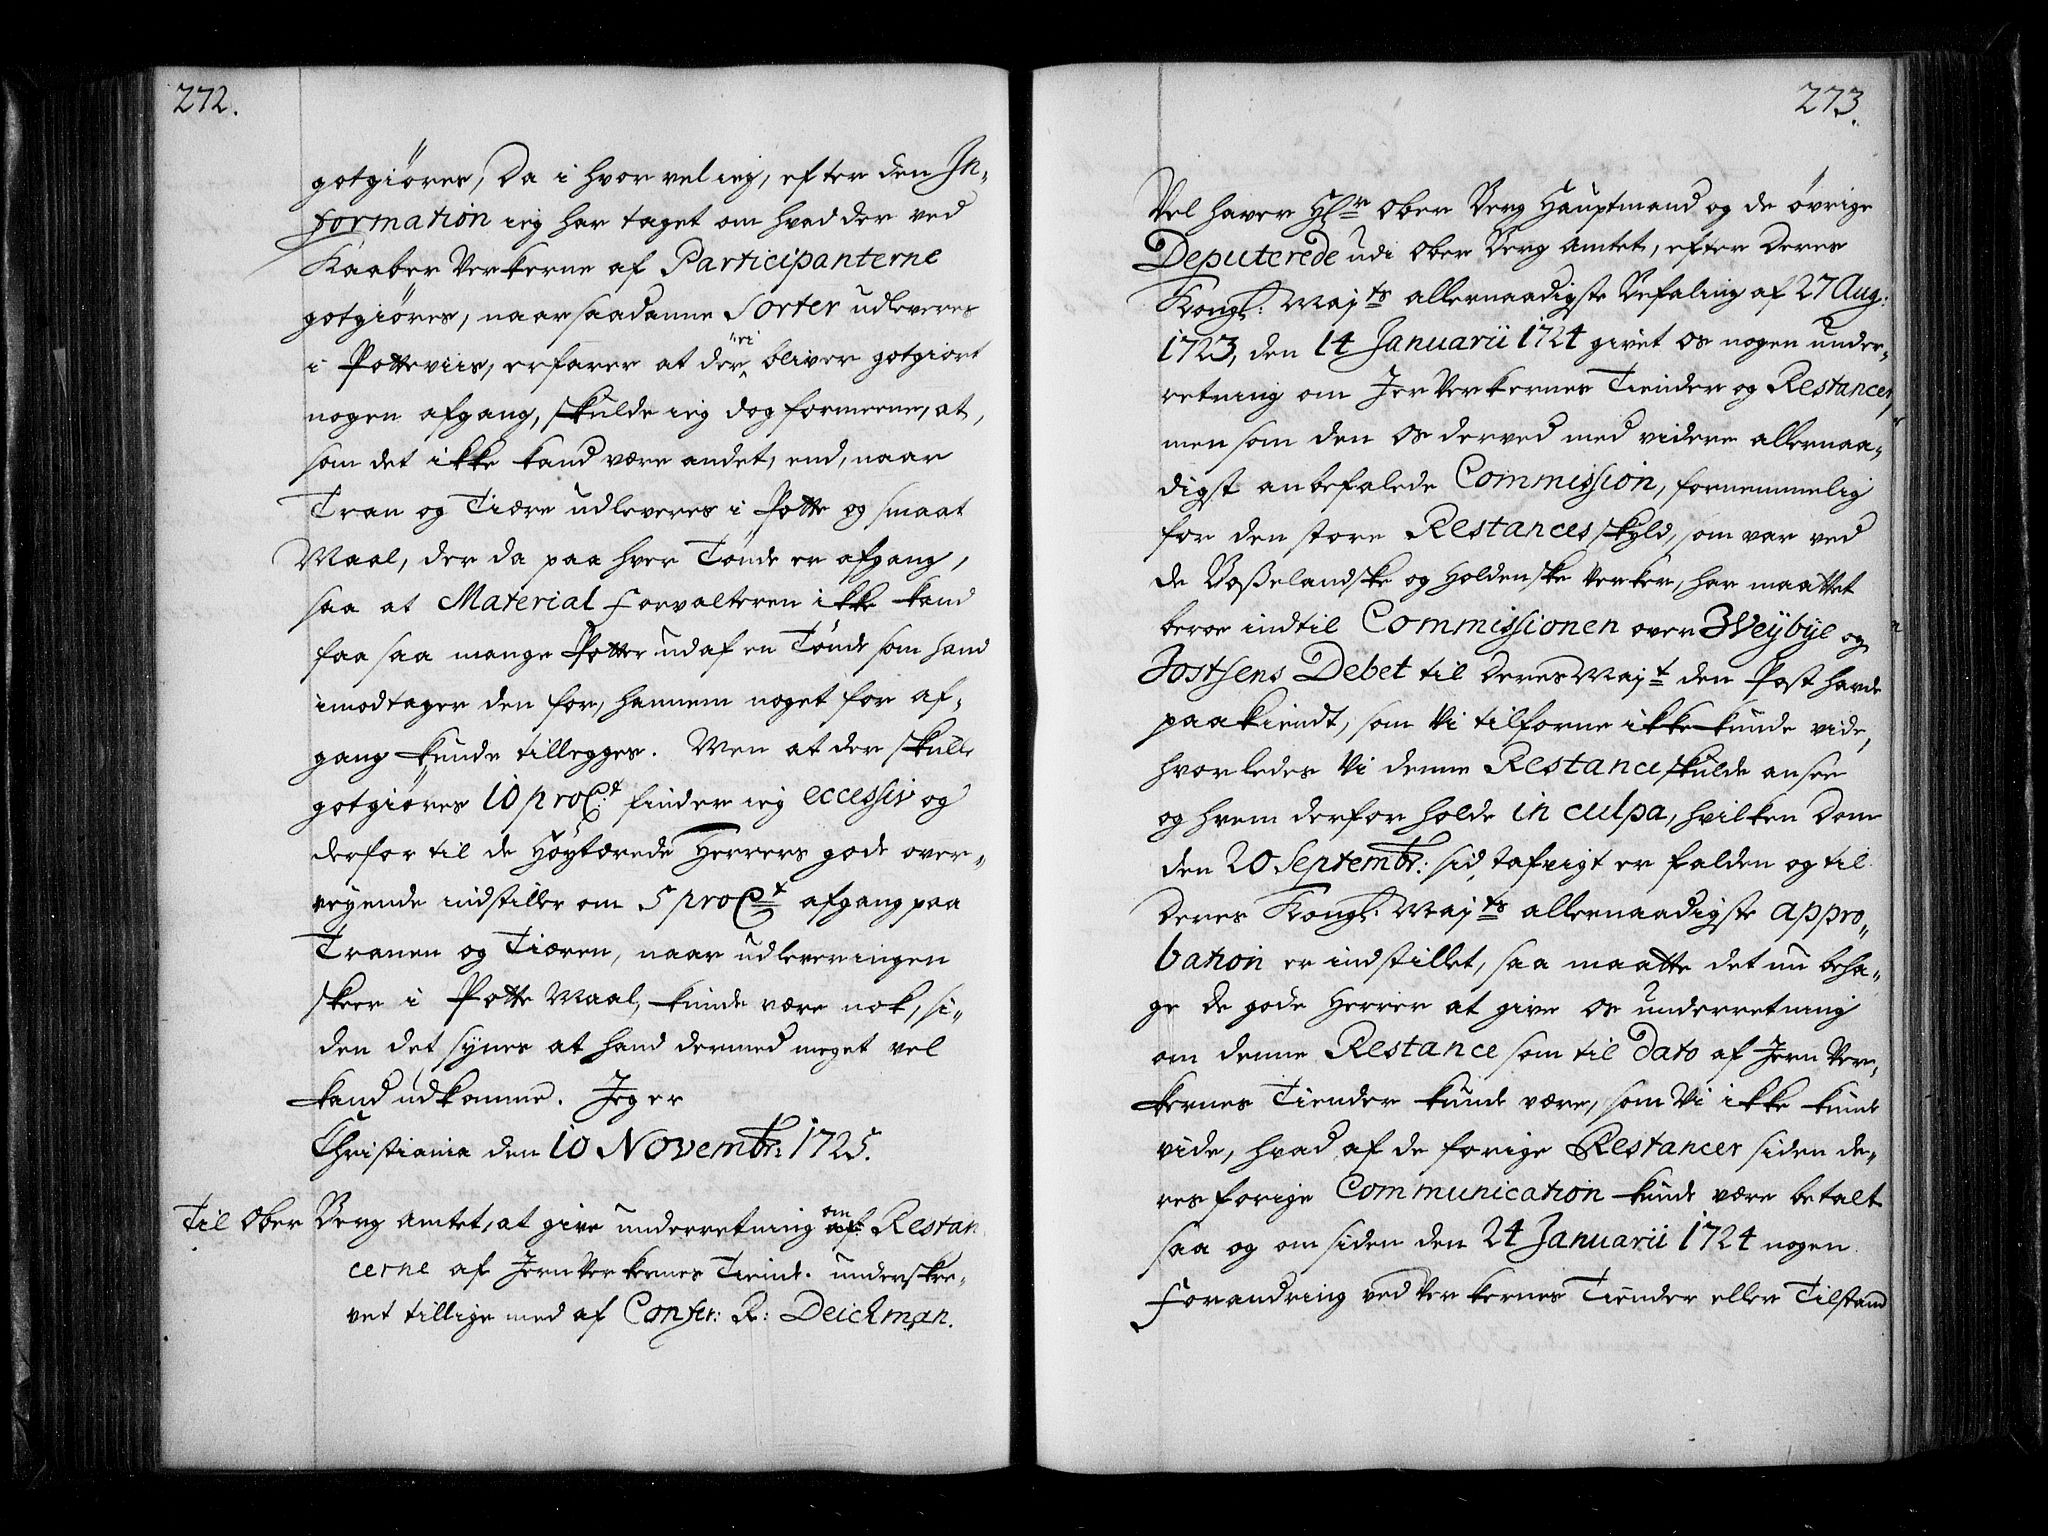 272.
gotgiøres, Da i hvor vel ieg, efter den In-
formation ieg har taget om hvad der ved
Kaaber Verkerne af Participanterne
gotgiøres, naar saadanne Sorter udleveres
i Potteviis, erfarer at der ei bliver gotgiort
nogen afgang, skulde ieg dog formeene, at,
som det ikke kand være andet, end, naar
Tran og Tiære udleveres i Potte og smaat
Maal, der da paa hver Tønde er afgang,
saa at Material Forvalteren ikke kand
faa saa mange Potter ud af en Tønde som hand
imodtager den for, hannem noget for af-
gang kunde tillegges. Men at der skulle
gotgiøres 10 proCt. finder ieg eccessiv og
derfor til de Høytærede Herrers gode over-
veyende indstiller om 5 proCt afgang paa
Tranen og Tiæren, naar udleveringen
skeer i Potte Maal, kunde være nok, si-
den det synes at hand dermed meget vel
kand udkomme. Jeg er
Christiania den 10 Novembr: 1725.
Til Ober Berg Amtet, at give underretning om af Restan
cerne af JernVerkernes Tiende. underskre-
vet tillige med af Confer: R: Deichman.
273.
Vel haver Hr Ober Berg Hauptmand og de øvrige
Deputerede udi Ober Berg Amtet, efter Deres
Kongl: Majts allernaadigste Befaling af 27 Aug:
1723, den 14 Januarii 1724 givet os nogen under-
retning om JerVerkernes Tiender og Restancer,
men som den os derved med videre allernaa-
digst anbefalede Commission, fornemmelig
for den store Restances skyld, som var ved
de Boßelandske og Holdenske Verker, har maattet
beroe indtil Commissionen over Weÿbÿe og
Jostsens Debet til Deres Majt den Post havde
paakiendt, som Vi tilforne ikke kunde vide,
hvorledes Vi denne Restance skulde ansee
og hvem derfor holde in culpa, hvilken Dom
den 20 Septembr: sidstafvigt er falden og til
Deres Kongl: Majts allernaadigste appro-
bation er indstillet, saa maatte det nu beha-
ge de gode Herrer at give os underretning
om denne Restance som til dato af Jern Ver-
kernes Tiender kunde være, som Vi ikke kunde
vide, hvad af de forige Restancer siden de-
res forige Communication kunde være betalt
saa og om siden den 24 Januarii 1724 nogen
Forandring ved Verkernes Tiender eller Tilstand